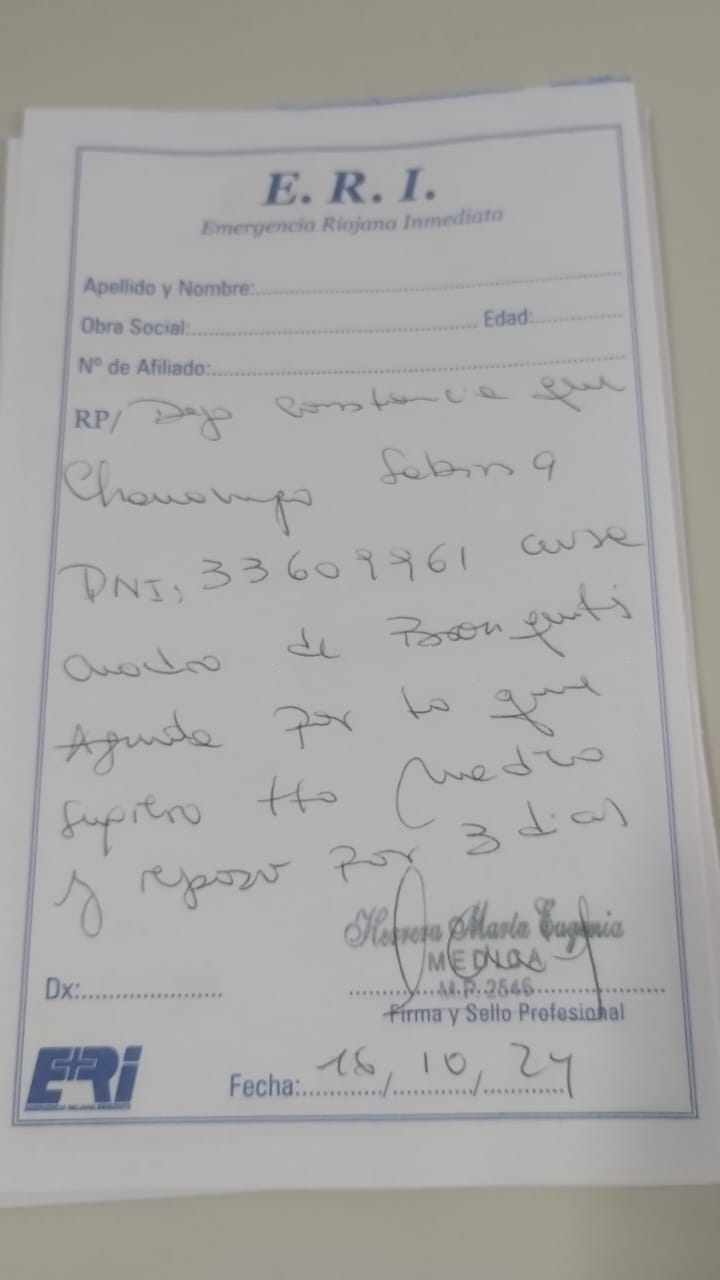 E. R. I.
Emergencia Riojana Inmediata
Apellido y Nombre:
Obra Social: Edad:
Nº de Afiliado:
RP/ Dejo constancia que
DNI: 33609961 cursa
cuadro de
Aguda por lo que
sugiero tto medico
y reposo por 3 dias
Herrera María Eugenia
MEDICA
M.P. 2545
Dx:
Firma y Sello Profesional
ERI
Fecha: 18/10/24